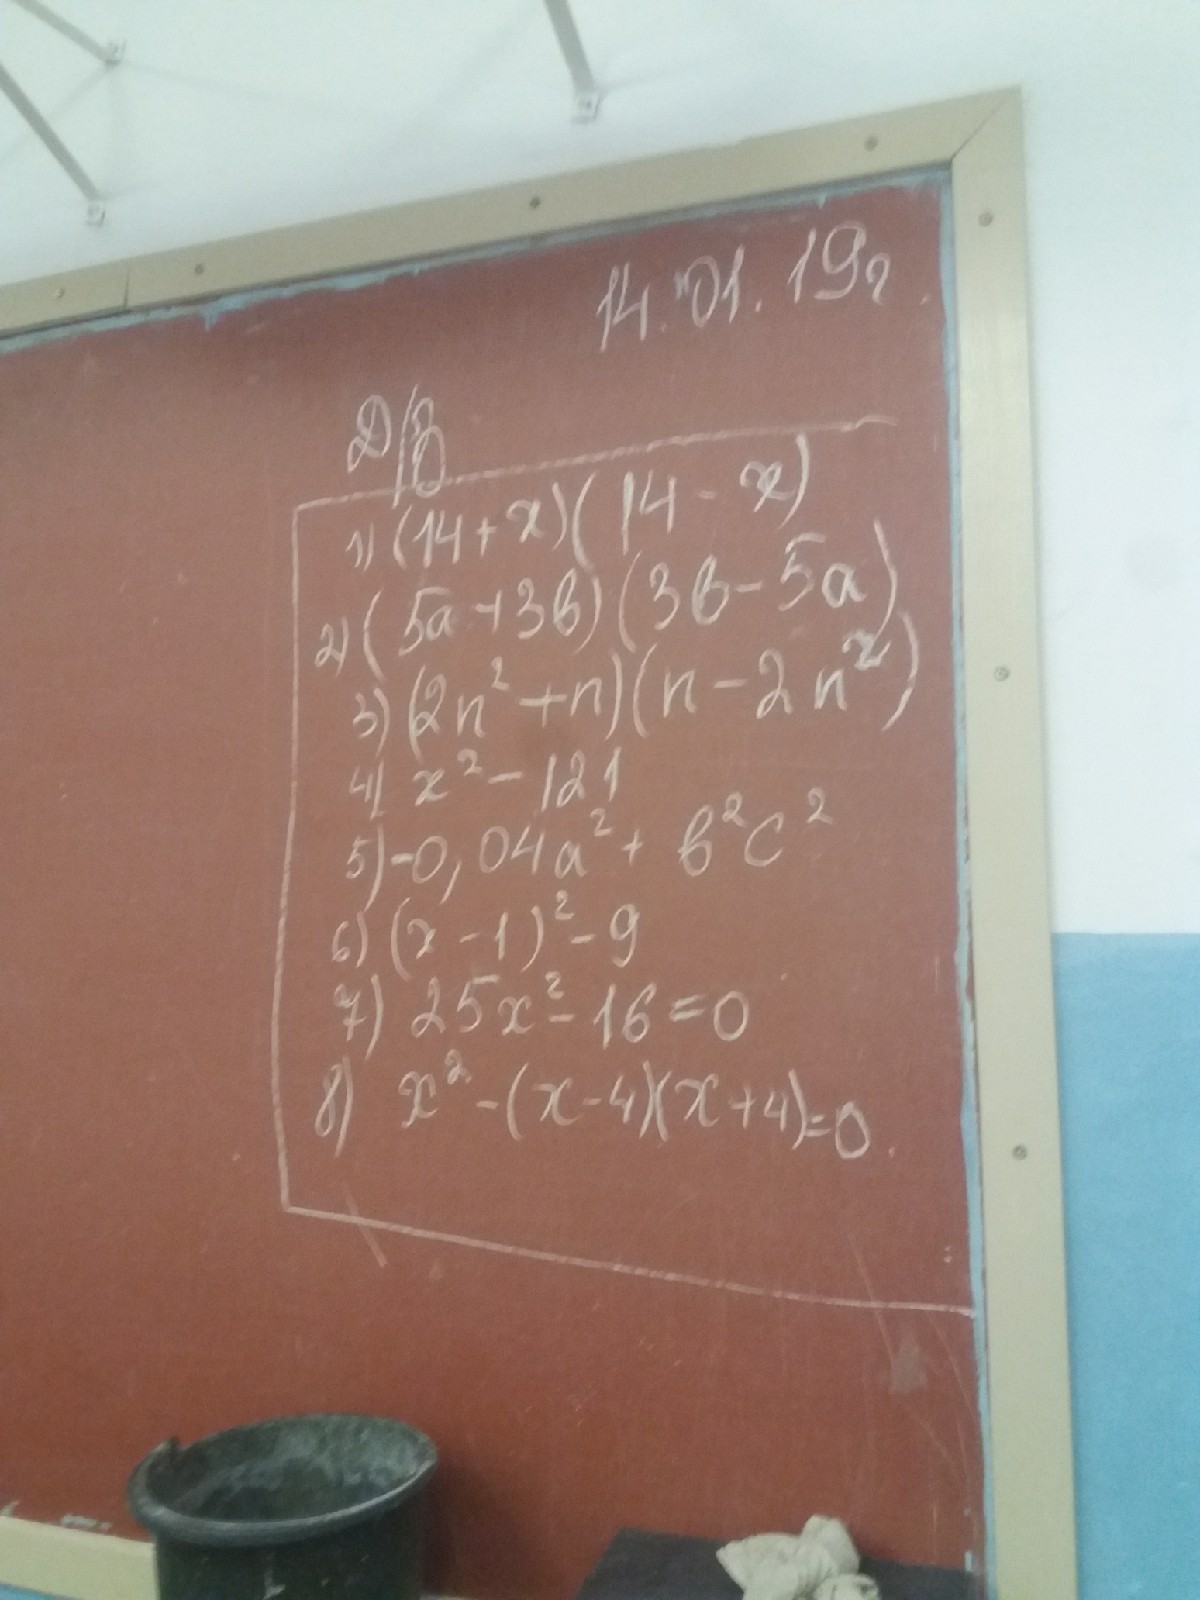 14. 01. 19г.
Д/З
1) (14+x)(14-x)
2) (5a+3в)(3в-5a)
3) (2n²+n)(n-2n²)
4) x²-121
5) -0,04a²+в²c²
6) (x-1)²-9
7) 25x²-16=0
8) x²-(x-4)(x+4)=0.